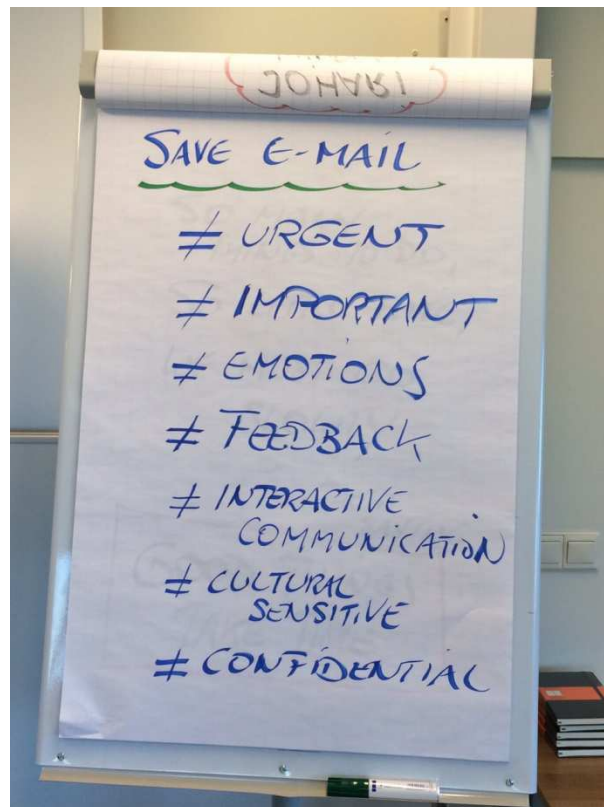 JOHARI
SAVE E-MAIL
≠ URGENT
≠ IMPORTANT
≠ EMOTIONS
≠ FEEDBACK
≠ INTERACTIVE
COMMUNICATION
≠ CULTURAL
SENSITIVE
≠ CONFIDENTIAL